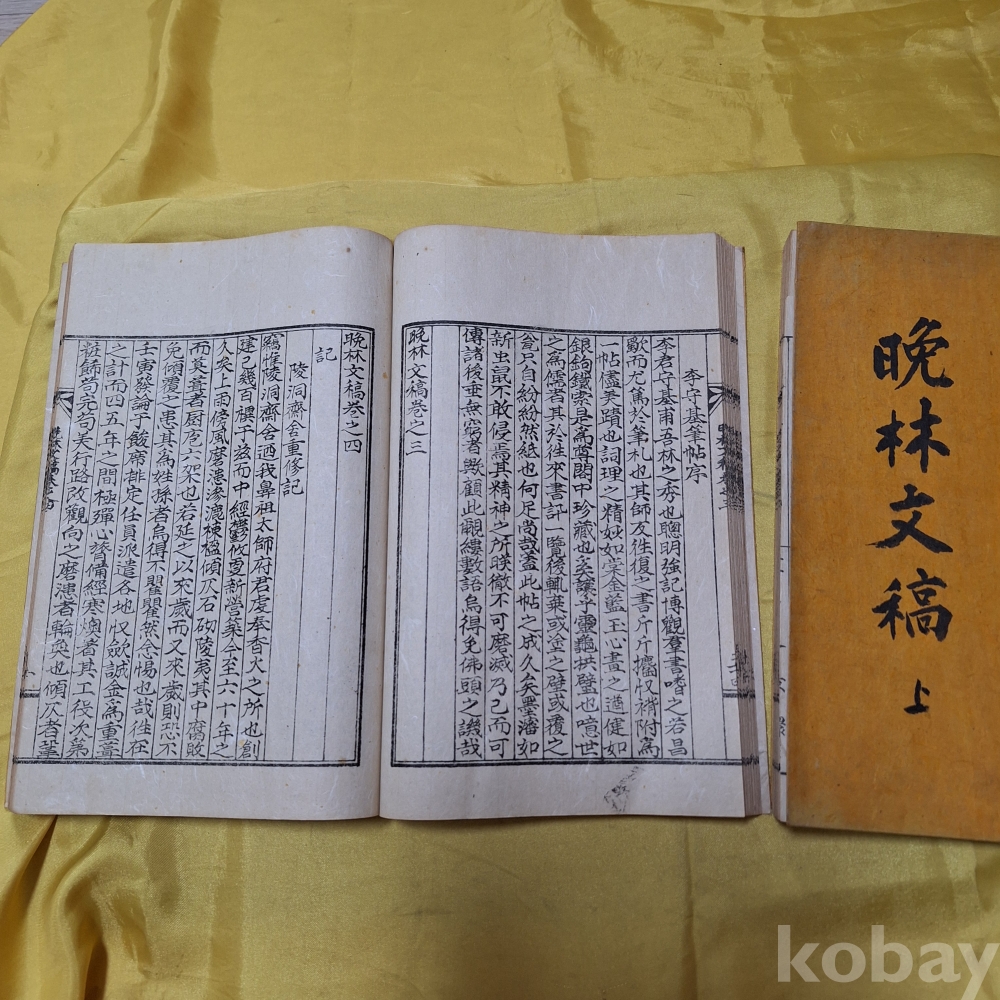 李守基筆帖序
李君守基甫吾林之秀也聰明強記博觀羣書嗜之若昌
歜而尤篤於筆札也其師友往復之書斤斤攟收褙附爲
一帖儘美蹟也詞理之精妙如堂金藍玉心畫之遒健如
銀鉤鐵索是爲尊閣中珍藏也奚讓乎靈龜拱璧也噫世
之爲儒者其於往來書記一覽後輒葉或塗之壁或覆之
瓮只自紛紛然紙也何足尚哉蓋此帖之成久矣墨瀋如
新虫鼠不敢侵焉其精神之所暎徹不可磨滅乃已而可
傳諸後垂無窮者歟顧此覼縷數語烏得免佛頭之譏哉
晚林文稿卷之三
晚林文稿卷之四
記
陵洞齋舍重修記
竊惟陵洞齋舍迺我鼻祖太師府君虔奉香火之所也創
建已幾百禩于茲而中經鬱攸更新營築今至六十年之
久矣上雨傍風磨漶滲漉棟楹傾仄石砌陵夷其中腐敗
而莫葺者厨庖六架也若延之以來歲而又來歲則恐不
免傾覆之患其爲姓孫者烏得不瞿瞿然念惕也哉往在
壬寅發論于餕席排定任員派遣各地收歛誠金爲重葺
之計而四五年之間極殫心膂備經寒燠者其工役次第
粧餙苟完苟美行路改觀向之磨漶者輪奐也傾仄者筆
晚林文稿
上
kobay